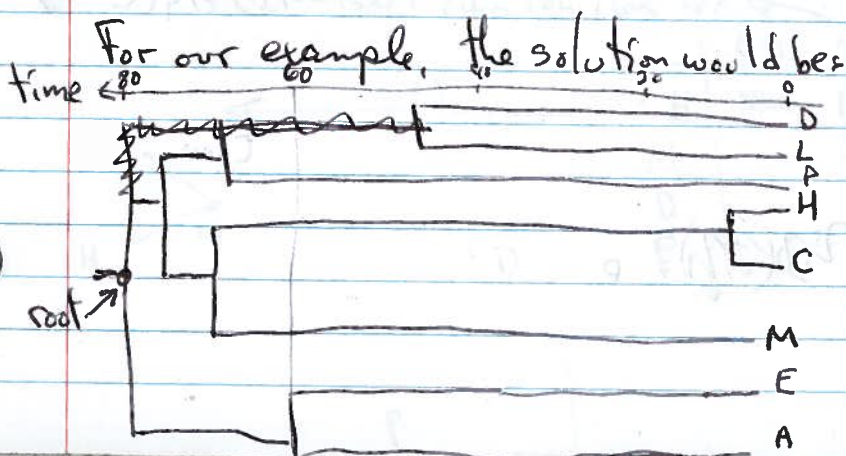 For our example, the solution would be:
time 80 60 40 20 0
D
L
P
H
C
root
M
E
A